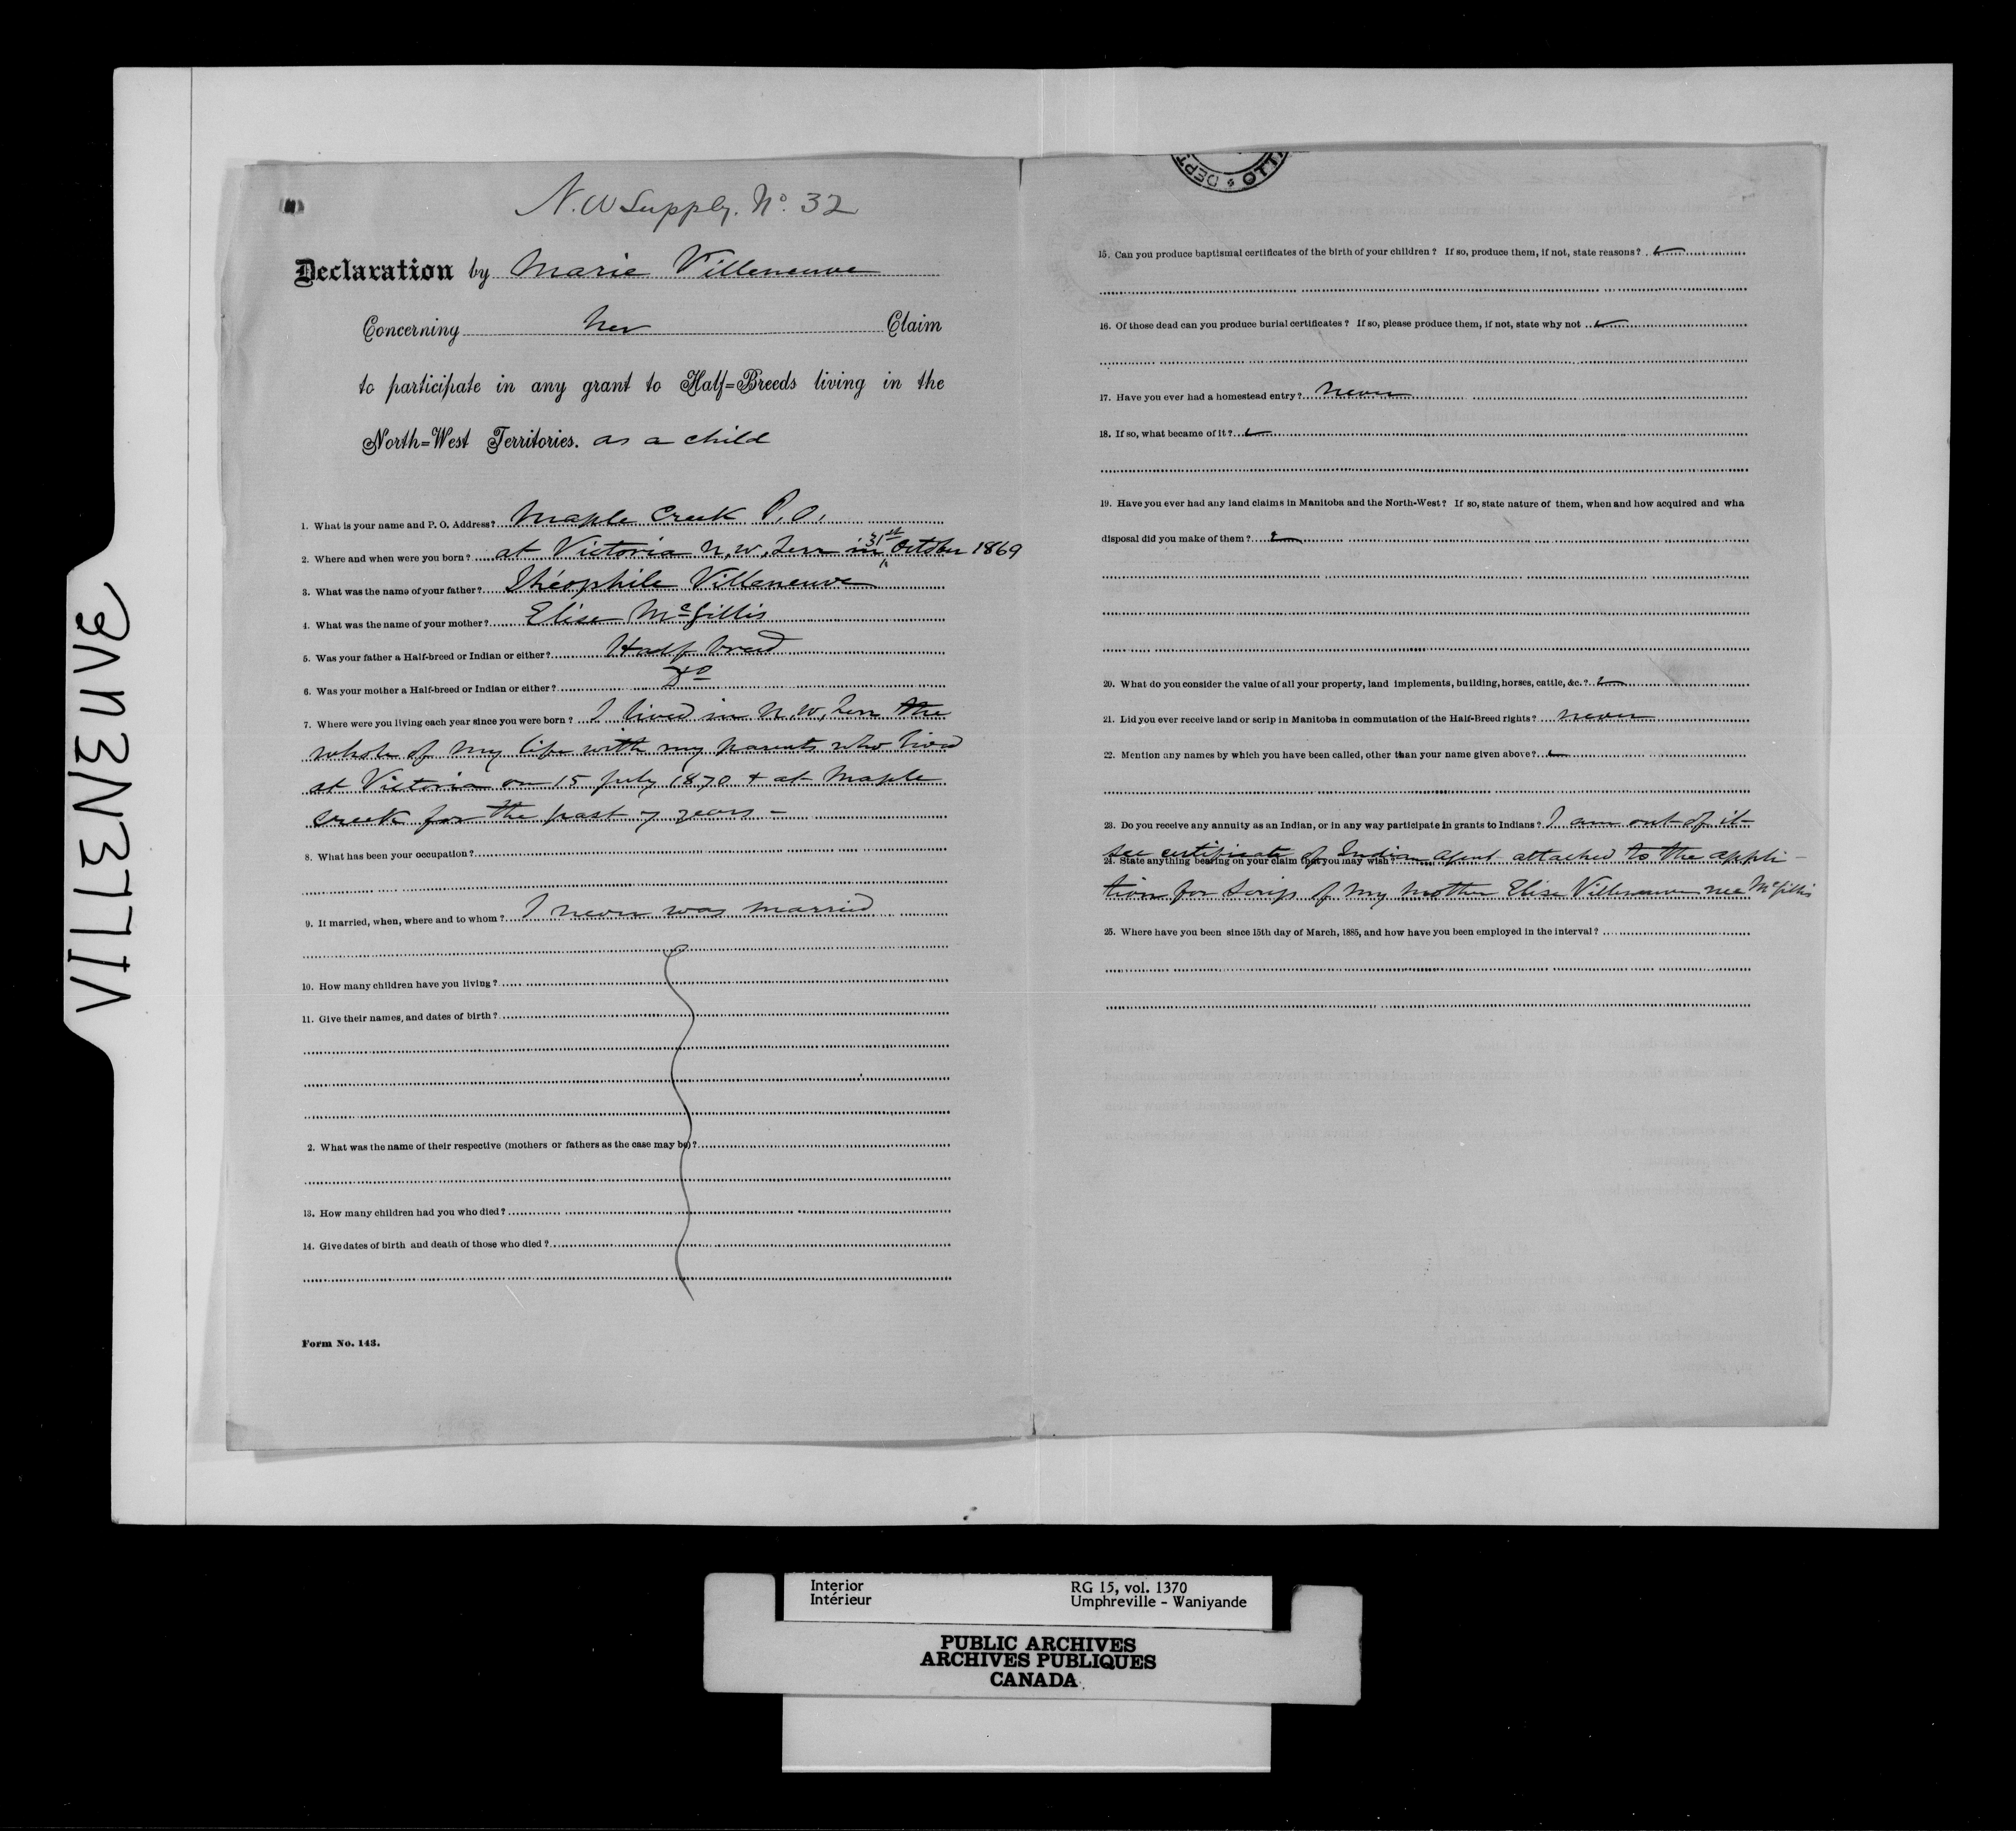 VILLENEUVE
N.W Supply. No. 32
Declaration by Marie Villeneuve
Concerning her Claim
to participate in any grant to Half=Breeds living in the
North=West Territories. as a child
1. What is your name and P. O. Address? Maple Creek P.O.
2. Where and when were you born? at Victoria N.W. Terr in 31st October 1869
3. What was the name of your father? Théophile Villeneuve
4. What was the name of your mother? Elise McGillis
5. Was your father a Half-breed or Indian or either? Half breed
6. Was your mother a Half-breed or Indian or either? Do
7. Where were you living each year since you were born? I lived in N.W. Terr the
whole of my life with my parents who lived
at Victoria on 15 July 1870 + at Maple
Creek for the past 7 years -
8. What has been your occupation?
9. If married, when, where and to whom? I never was married
10. How many children have you living?
11. Give their names, and dates of birth?
2. What was the name of their respective (mothers or fathers as the case may be)?
13. How many children had you who died?
14. Give dates of birth and death of those who died?
Form No. 143.
DEPT. OTTA
15. Can you produce baptismal certificates of the birth of your children? If so, produce them, if not, state reasons?
16. Of those dead can you produce burial certificates? If so, please produce them, if not, state why not
17. Have you ever had a homestead entry? never
18. If so, what became of it?
19. Have you ever had any land claims in Manitoba and the North-West? If so, state nature of them, when and how acquired and wha
disposal did you make of them?
20. What do you consider the value of all your property, land implements, building, horses, cattle, &c.?
21. Did you ever receive land or scrip in Manitoba in commutation of the Half-Breed rights? never
22. Mention any names by which you have been called, other than your name given above?
23. Do you receive any annuity as an Indian, or in any way participate in grants to Indians? I am out of it
see certificate of Indian agent attached to the appli-
24. State anything bearing on your claim that you may wish?
tion for Scrip of my mother Elise Villeneuve nee McGillis
25. Where have you been since 15th day of March, 1885, and how have you been employed in the interval?
Interior RG 15, vol. 1370
Intérieur Umphreville - Waniyande
PUBLIC ARCHIVES
ARCHIVES PUBLIQUES
CANADA